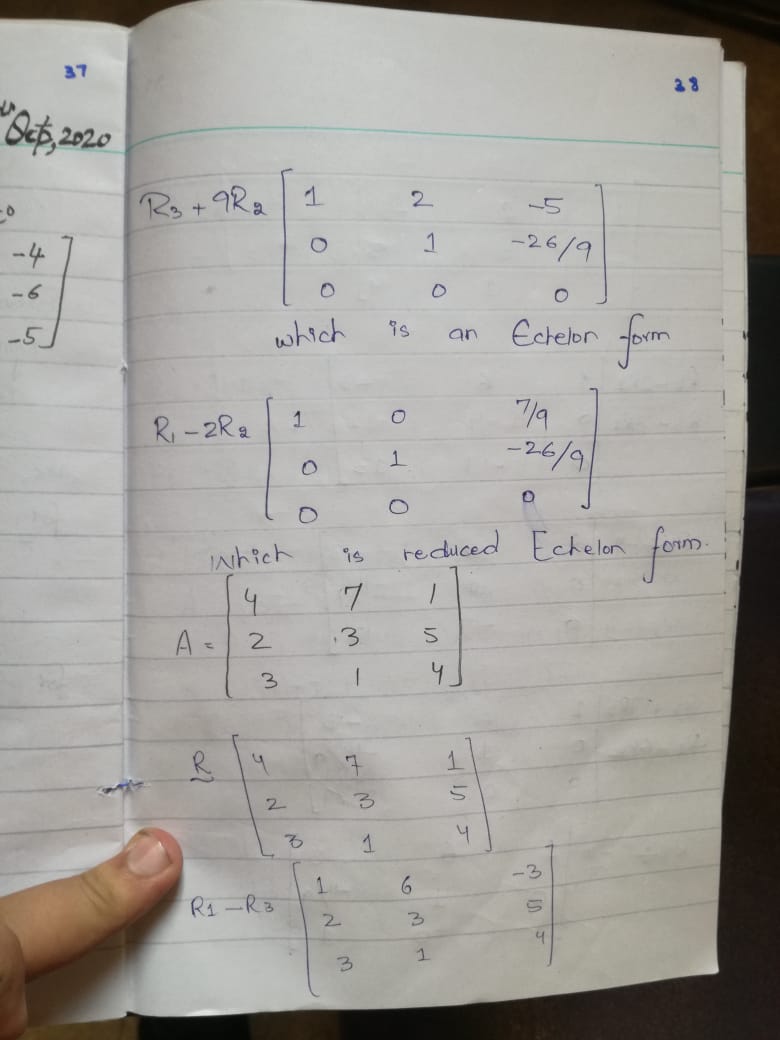 37
Oct, 2020
-4
-6
-5
38
R3 + 9R2 [ 1 2 -5
0 1 -26/9
0 0 0 ]
which is an Echelon form
R1 - 2R2 [ 1 0 7/9
0 1 -26/9
0 0 0 ]
Which is reduced Echelon form.
A = [ 4 7 1
2 3 5
3 1 4 ]
R [ 4 7 1
2 3 5
3 1 4 ]
R1 - R3 [ 1 6 -3
2 3 5
3 1 4 ]